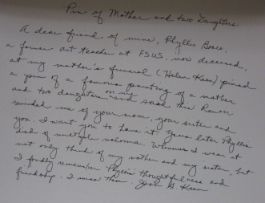 Pin of Mother and two Daughters
A dear friend of mine, Phyllis Bove,
a former art teacher at FSUS, now deceased,
at my mother's funeral (Helen Keen) pinned
a pin of a famous painting of a mother
and two daughters on me and said this
minded me of your mom, your sister and
you. I want you to have it. Years later Phyllis
died of multiple myeloma. Whenever I wear it
not only think of my mother and my sister, but
I fondly remember Phyllis' thoughtfulness and
friendship. I miss them